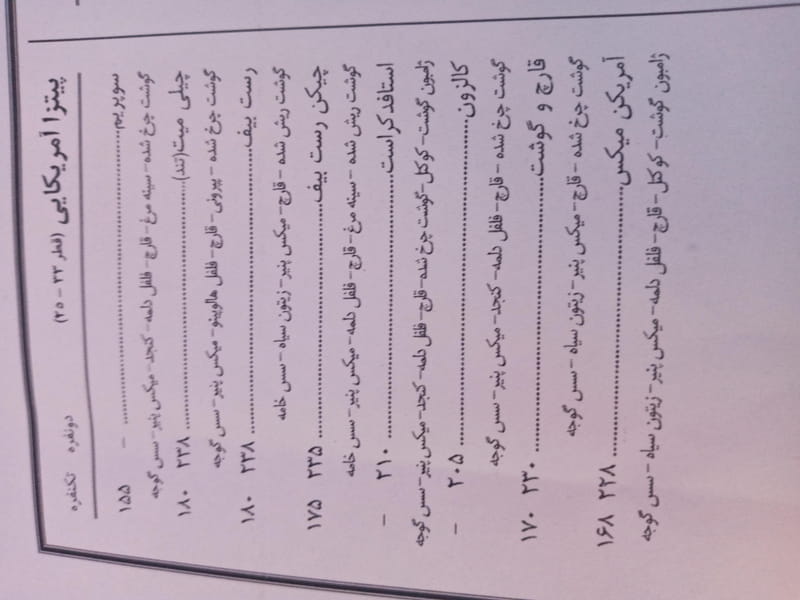 پیتزا آمریکایی (قطر ۳۳ - ۲۵) دونفره تکنفره
سوپریم - ۱۵۵
گوشت چرخ شده - سینه مرغ - قارچ - فلفل دلمه - کنجد - میکس پنیر - سس گوجه
چیلی میت (تند) ۲۳۸ ۱۸۰
گوشت چرخ شده - پپرونی - قارچ - فلفل هالوپینو - میکس پنیر - سس گوجه
رست بیف ۲۳۸ ۱۸۰
گوشت ریش شده - قارچ - میکس پنیر - زیتون سیاه - سس خامه
چیکن رست بیف ۲۳۵ ۱۷۵
گوشت ریش شده - سینه مرغ - قارچ - فلفل دلمه - میکس پنیر - سس خامه
استافد کراست ۲۱۰ -
ژامبون گوشت - کوکتل - گوشت چرخ شده - قارچ - فلفل دلمه - کنجد - میکس پنیر - سس گوجه
کالزون ۲۰۵ -
گوشت چرخ شده - قارچ - فلفل دلمه - کنجد - میکس پنیر - سس گوجه
قارچ و گوشت ۲۳۰ ۱۷۰
گوشت چرخ شده - قارچ - میکس پنیر - زیتون سیاه - سس گوجه
آمریکن میکس ۲۲۸ ۱۶۸
ژامبون گوشت - کوکتل - قارچ - فلفل دلمه - میکس پنیر - زیتون سیاه - سس گوجه